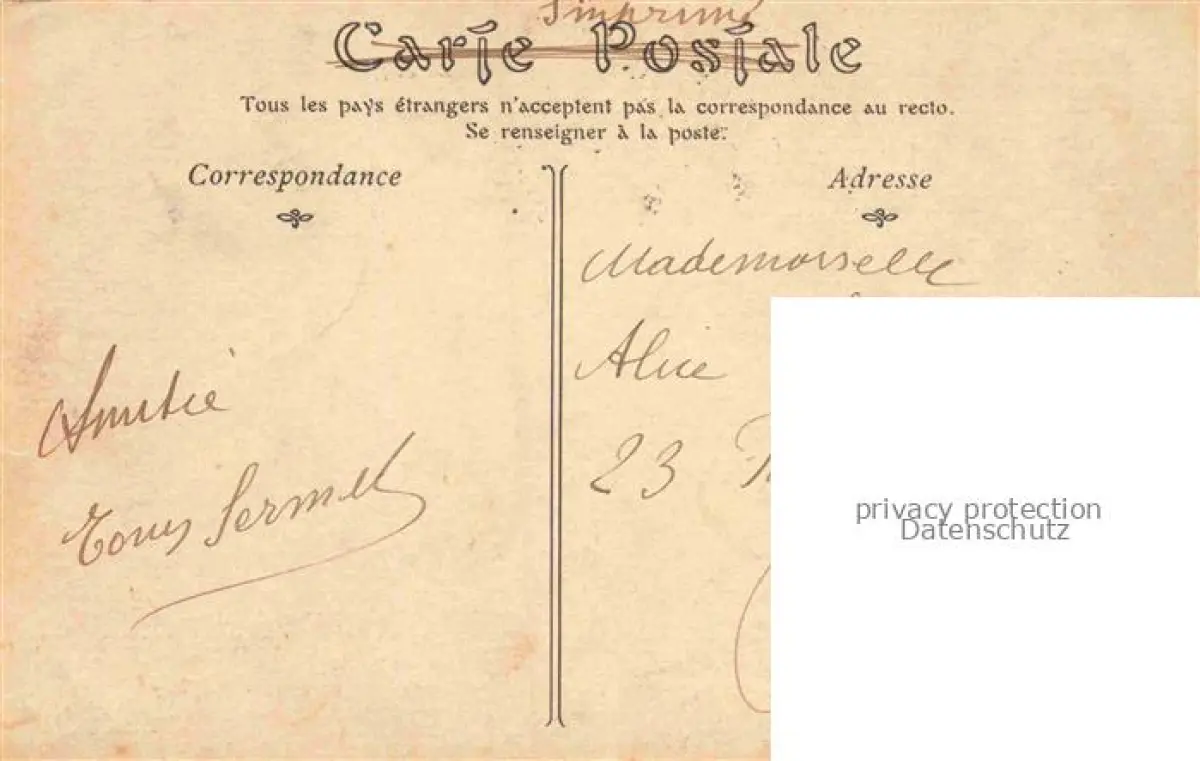 Imprimé
Carte Postale
Tous les pays étrangers n'acceptent pas la correspondance au recto.
Se renseigner à la poste.
Correspondance
Adresse
Amitié
Mademoiselle
Alice
23
privacy protection
Datenschutz